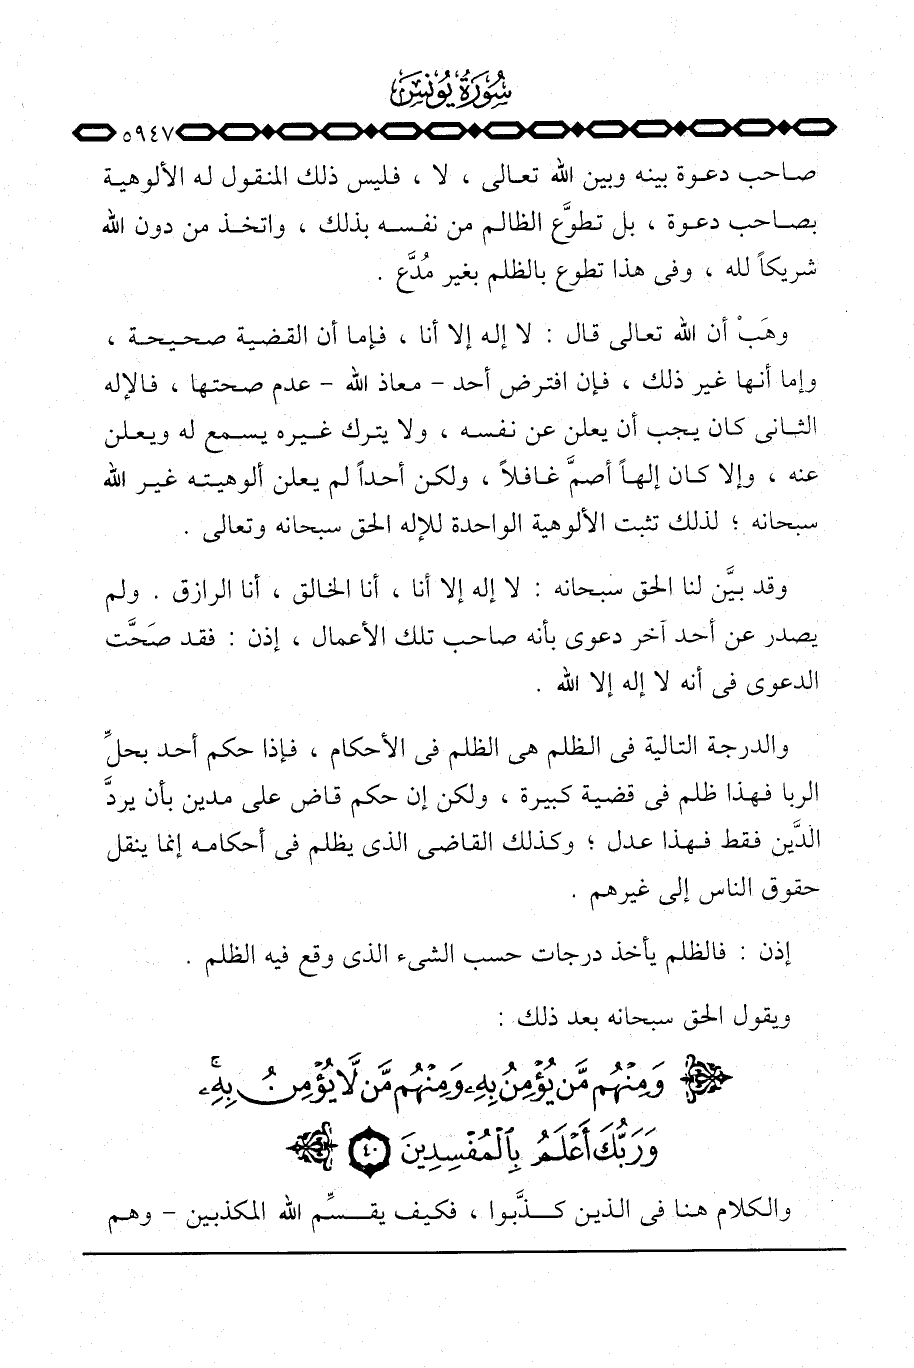 سُورَةُ يُونُسَ
٥٩٤٧
صاحب دعوة بينه وبين الله تعالى ، لا ، فليس ذلك المنقول له الألوهية
بصاحب دعوة ، بل تطوَّع الظالم من نفسه بذلك ، واتخذ من دون الله
شريكاً لله ، وفى هذا تطوع بالظلم بغير مُدَّع .
وهَبْ أن الله تعالى قال : لا إله إلا أنا ، فإما أن القضية صحيحة ،
وإما أنها غير ذلك ، فإن افترض أحد – معاذ الله – عدم صحتها ، فالإله
الثانى كان يجب أن يعلن عن نفسه ، ولا يترك غيره يسمع له ويعلن
عنه ، وإلا كان إلهاً أصمَّ غافلاً ، ولكن أحداً لم يعلن ألوهيته غير الله
سبحانه ؛ لذلك تثبت الألوهية الواحدة للإله الحق سبحانه وتعالى .
وقد بيَّن لنا الحق سبحانه : لا إله إلا أنا ، أنا الخالق ، أنا الرازق . ولم
يصدر عن أحد آخر دعوى بأنه صاحب تلك الأعمال ، إذن : فقد صَحَّت
الدعوى فى أنه لا إله إلا الله .
والدرجة التالية فى الظلم هى الظلم فى الأحكام ، فإذا حكم أحد بحلِّ
الربا فهذا ظلم فى قضية كبيرة ، ولكن إن حكم قاض على مدين بأن يردَّ
الدَّين فقط فهذا عدل ؛ وكذلك القاضى الذى يظلم فى أحكامه إنما ينقل
حقوق الناس إلى غيرهم .
إذن : فالظلم يأخذ درجات حسب الشىء الذى وقع فيه الظلم .
ويقول الحق سبحانه بعد ذلك :
وَمِنْهُم مَّن يُؤْمِنُ بِهِۦ وَمِنْهُم مَّن لَّا يُؤْمِنُ بِهِۦۚ
وَرَبُّكَ أَعْلَمُ بِٱلْمُفْسِدِينَ ٤٠
والكلام هنا فى الذين كذَّبوا ، فكيف يقسِّم الله المكذبين – وهم